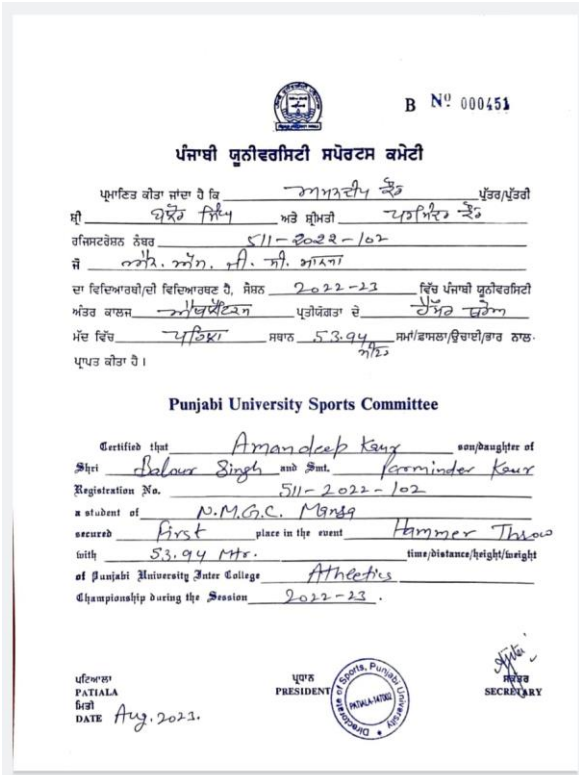 B Nº 000451
ਪੰਜਾਬੀ ਯੂਨੀਵਰਸਿਟੀ ਸਪੋਰਟਸ ਕਮੇਟੀ
ਪ੍ਰਮਾਣਿਤ ਕੀਤਾ ਜਾਂਦਾ ਹੈ ਕਿ ਅਮਨਦੀਪ ਕੌਰ ਪੁੱਤਰ/ਪੁੱਤਰੀ
ਸ਼੍ਰੀ ਸਿੰਘ ਅਤੇ ਸ਼੍ਰੀਮਤੀ ਪਰਮਿੰਦਰ ਕੌਰ
ਰਜਿਸਟਰੇਸ਼ਨ ਨੰਬਰ 511-2022-102
ਜੋ ਐਨ. ਐਮ. ਜੀ. ਸੀ. ਮਾਨਸਾ
ਦਾ ਵਿਦਿਆਰਥੀ/ਦੀ ਵਿਦਿਆਰਥਣ ਹੈ, ਸੈਸ਼ਨ 2022-23 ਵਿੱਚ ਪੰਜਾਬੀ ਯੂਨੀਵਰਸਿਟੀ
ਅੰਤਰ ਕਾਲਜ ਪ੍ਰਤੀਯੋਗਤਾ ਦੇ ਹੈਮਰ ਥਰੋਅ
ਮੱਦ ਵਿੱਚ ਪਹਿਲਾ ਸਥਾਨ 53.94 ਮੀਟਰ ਸਮਾਂ/ਫ਼ਾਸਲਾ/ਉਚਾਈ/ਭਾਰ ਨਾਲ
ਪ੍ਰਾਪਤ ਕੀਤਾ ਹੈ।
Punjabi University Sports Committee
Certified that Amandeep Kaur son/daughter of
Shri Balour Singh and Smt. Parminder Kaur
Registration No. 511-2022-102
a student of N.M.G.C. Mansa
secured First place in the event Hammer Throw
with 53.94 Mtr. time/distance/height/weight
of Punjabi University Inter College Athletics
Championship during the Session 2022-23.
ਪਟਿਆਲਾ ਪ੍ਰਧਾਨ ਸਕੱਤਰ
PATIALA PRESIDENT SECRETARY
ਮਿਤੀ
DATE Aug. 2023.
Directorate of Sports, Punjabi University
PATIALA-147002